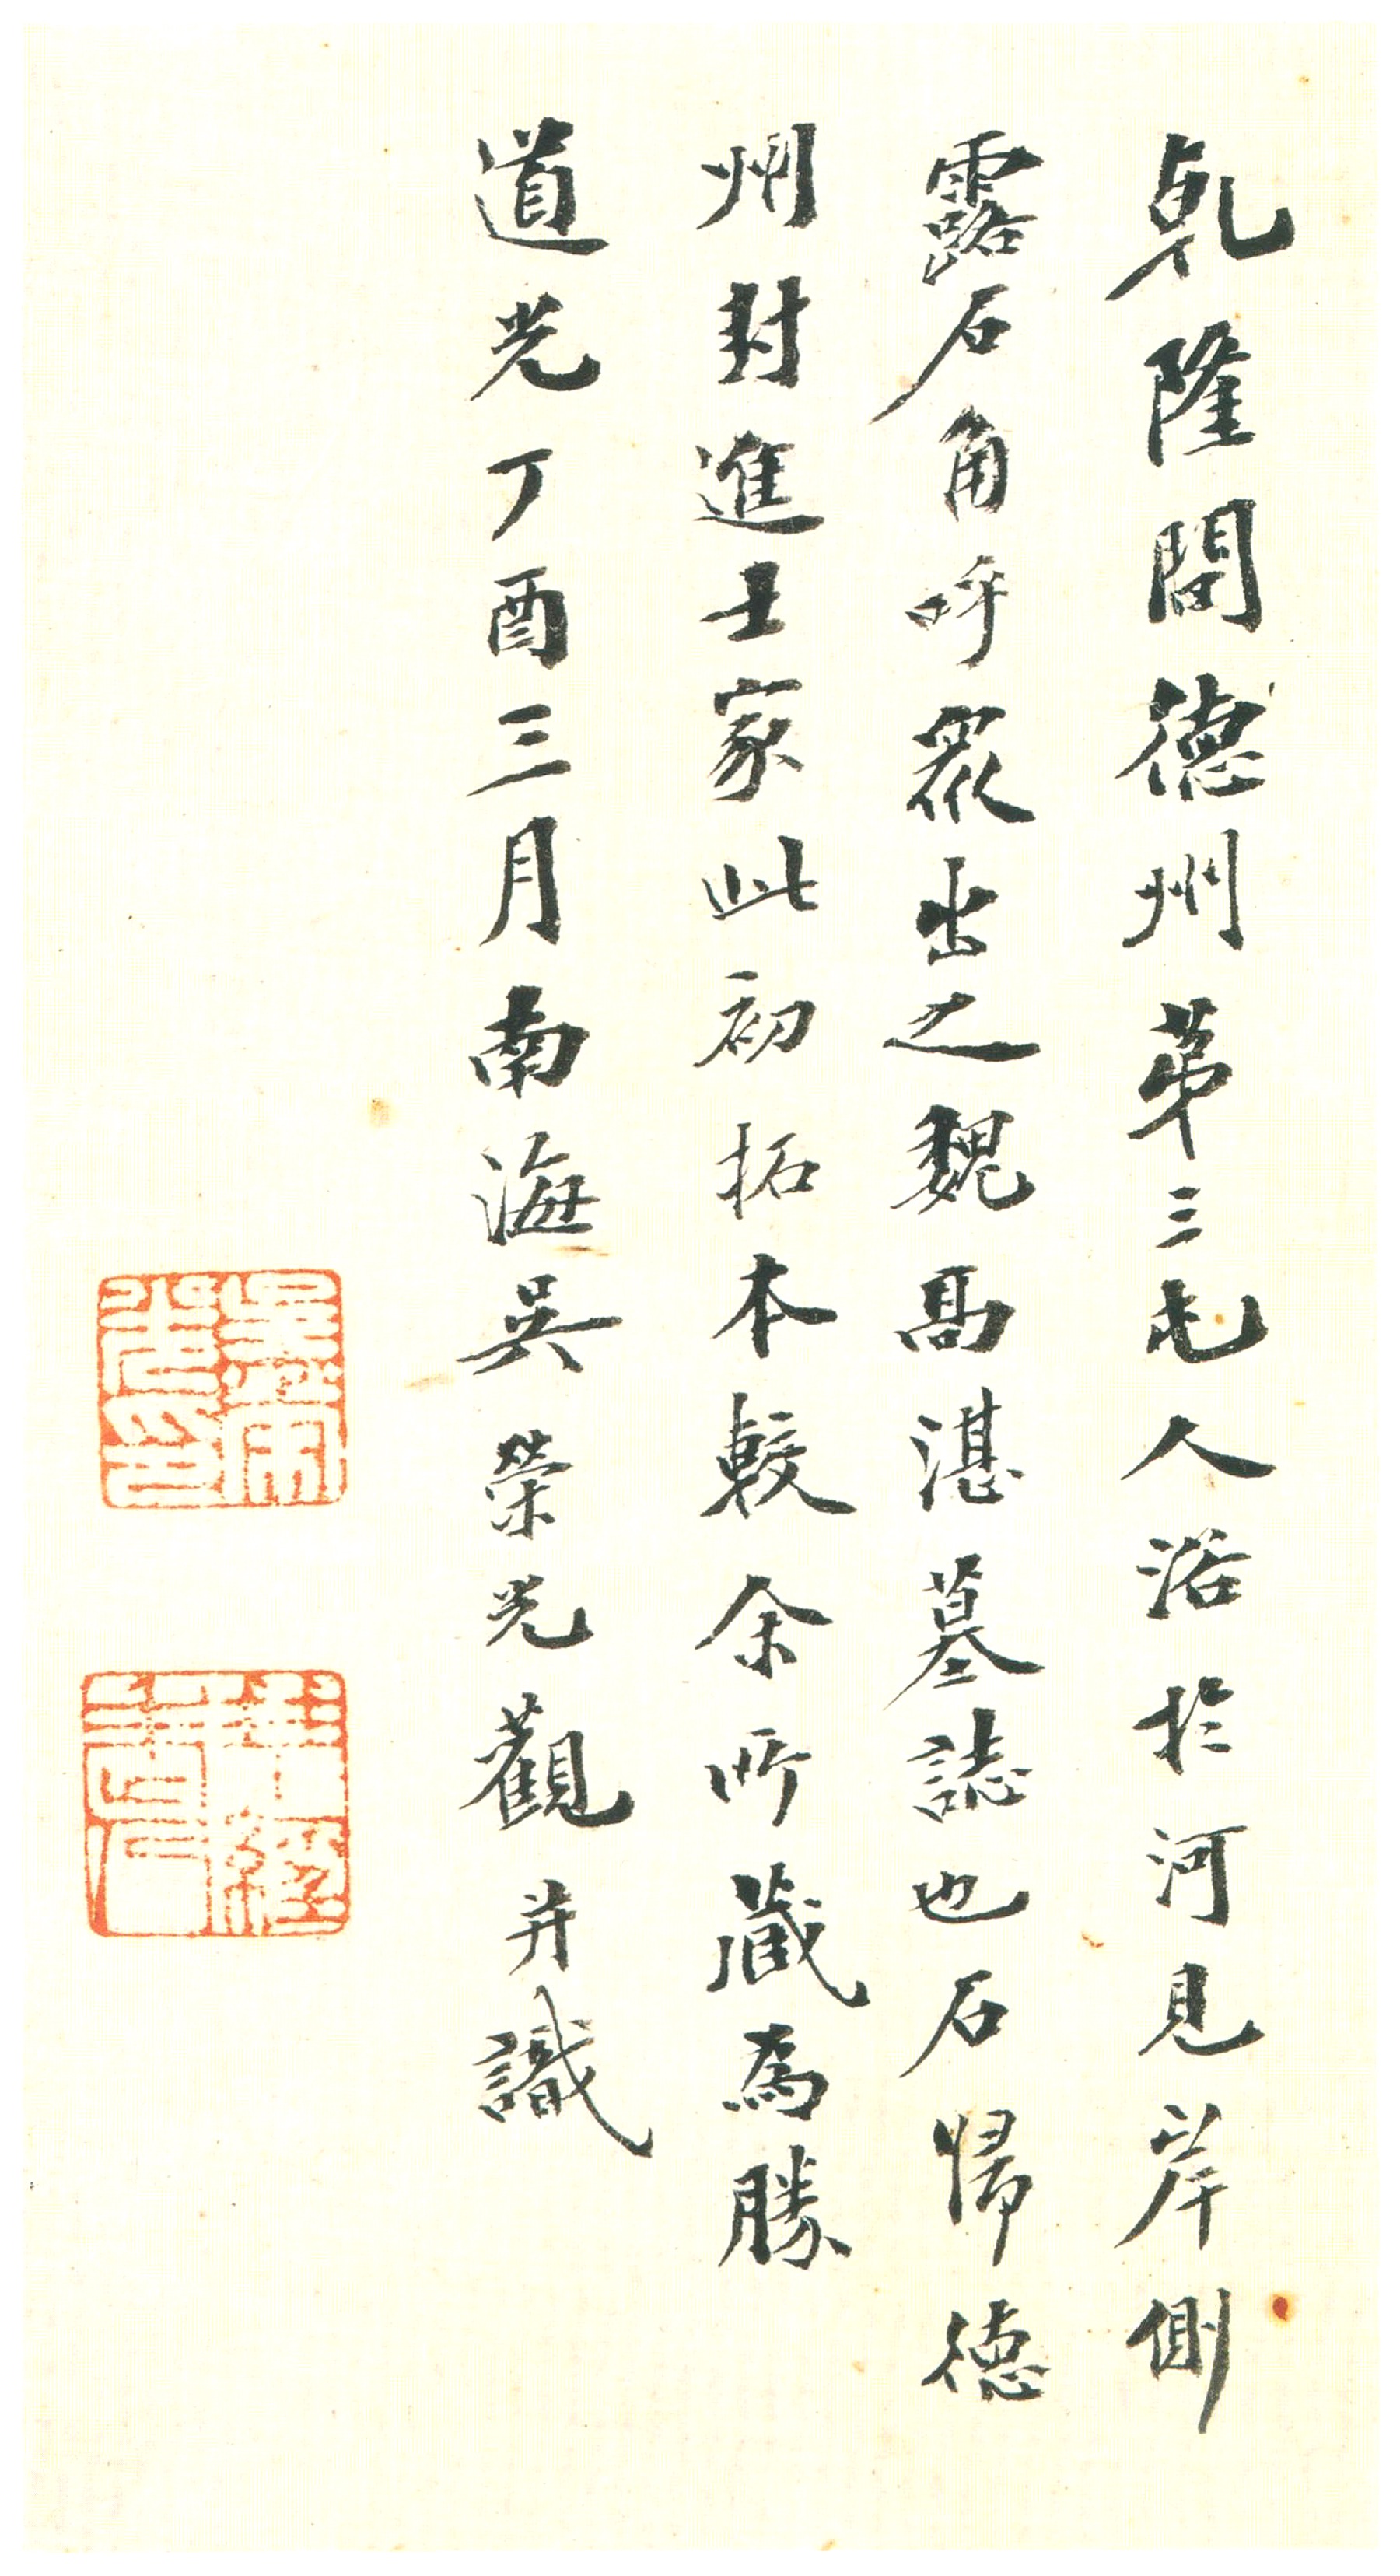 乾隆間德州苐三屯人浴於河見岸側
露石角呼衆出之魏高湛墓誌也石歸德
州封進士家此初拓本較余所藏為勝
道光丁酉三月南海吳榮光觀并識
吳榮光印